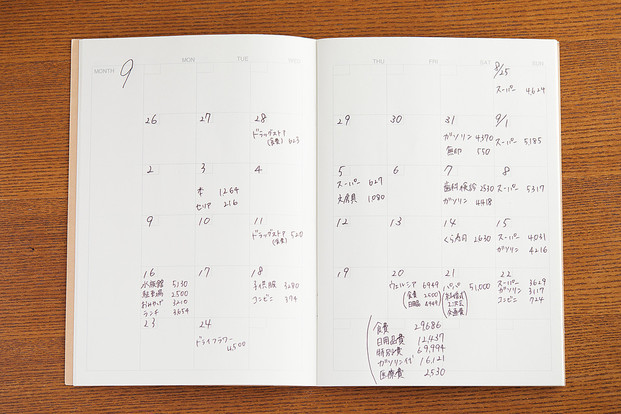 MONTH 9
MON TUE WED THU FRI SAT SUN
8/25
スーパー 4629
26 27 28 29 30 31 9/1
ドラッグストア
(食費) 623
ガソリン 4370
無印 550
スーパー 5185
2 3 4 5 6 7 8
本 1264
セリア 216
スーパー 627
文房具 1080
歯科検診 2530
ガソリン 4418
スーパー 5317
9 10 11 12 13 14 15
ドラッグストア 520
(食費)
くら寿司 2630
スーパー 4031
ガソリン 4216
16 17 18 19 20 21 22
水族館 5130
駐車場 2500
おみやげ 3210
ランチ 3654
子供服 3280
コンビニ 374
ウェルシア 6949
(食費 2500
日用品 4449)
パパ 51,000
2次会
会費
スーパー 3629
ガソリン 3117
コンビニ 724
23 24
ドライフラワー
4500
食費 29686
日用品費 12,437
特別費 69,994
ガソリン代 16,121
医療費 2530